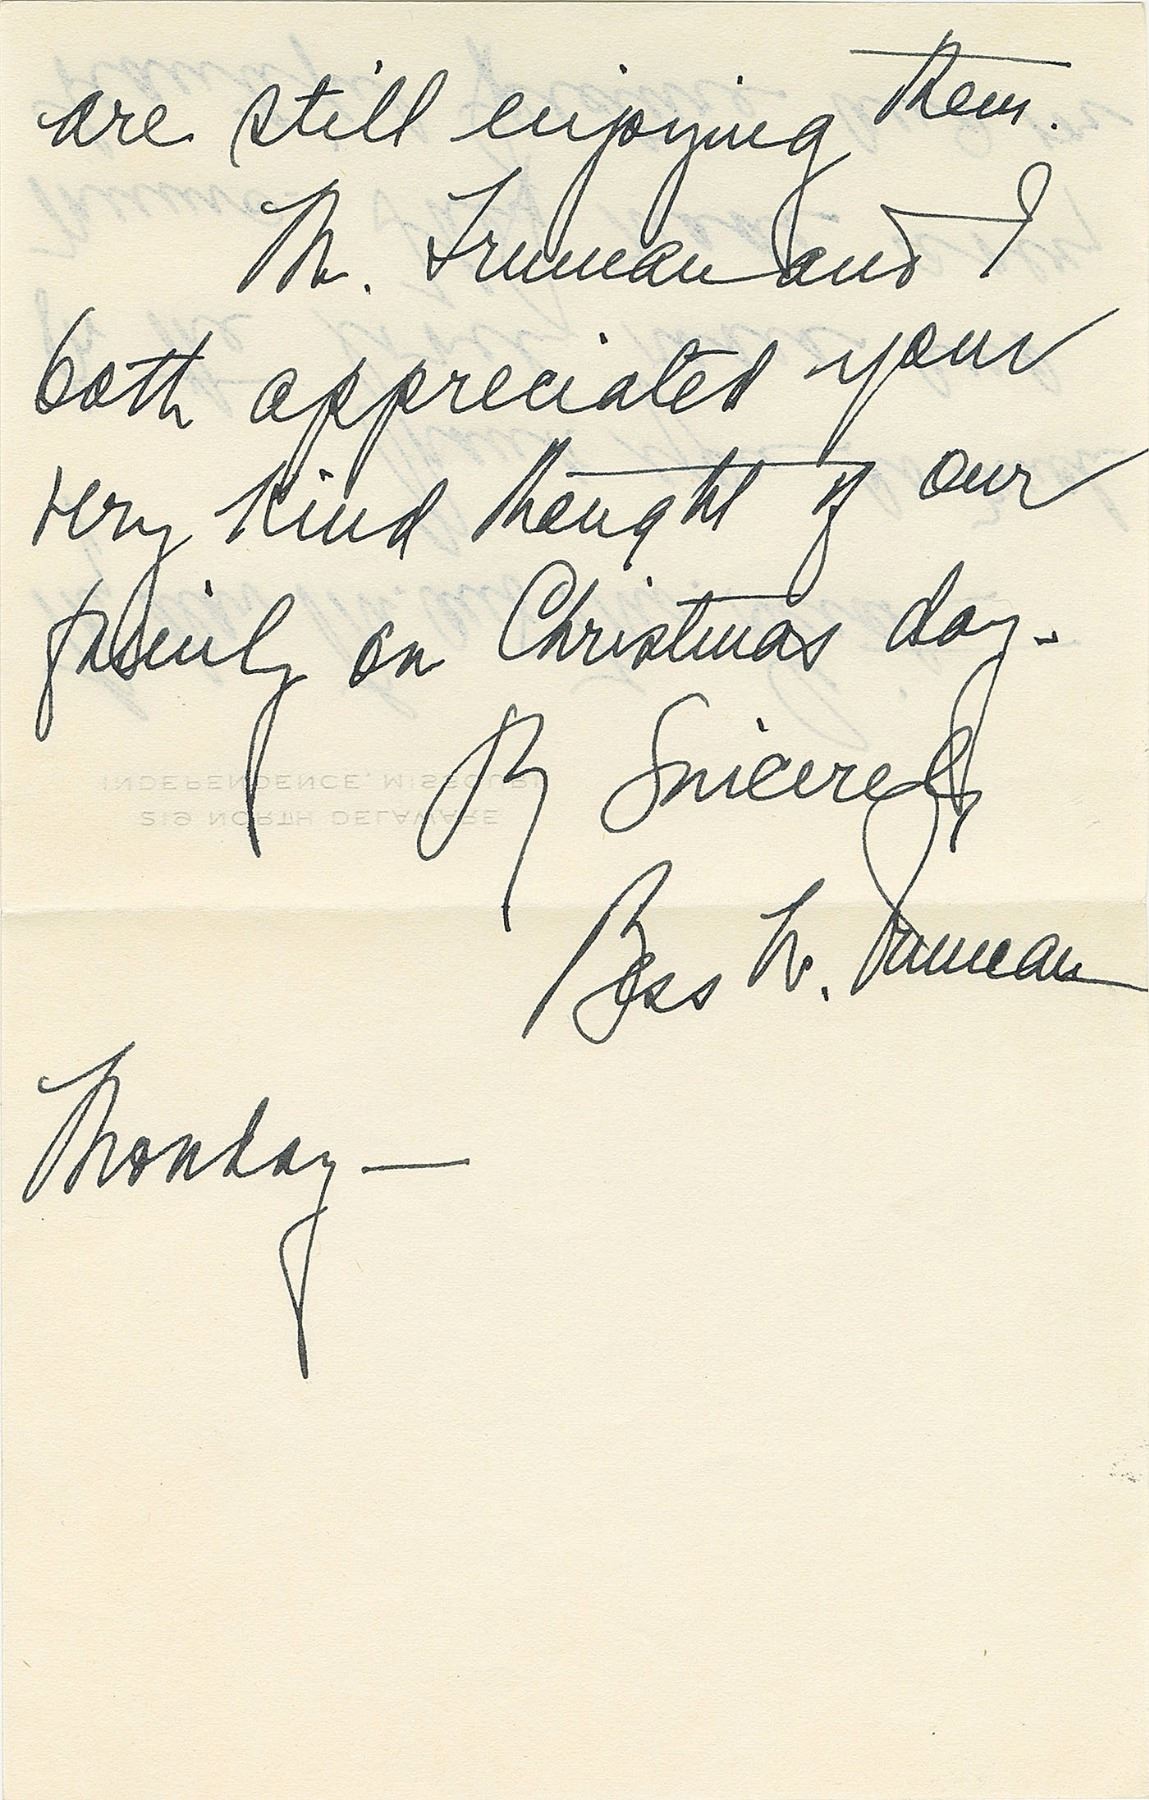 are still enjoying them.
Mr. Truman and I
both appreciated your
very kind thought of our
family on Christmas day.
Sincerely,
Bess W. Truman
Monday—
219 NORTH DELAWARE
INDEPENDENCE, MISSOURI